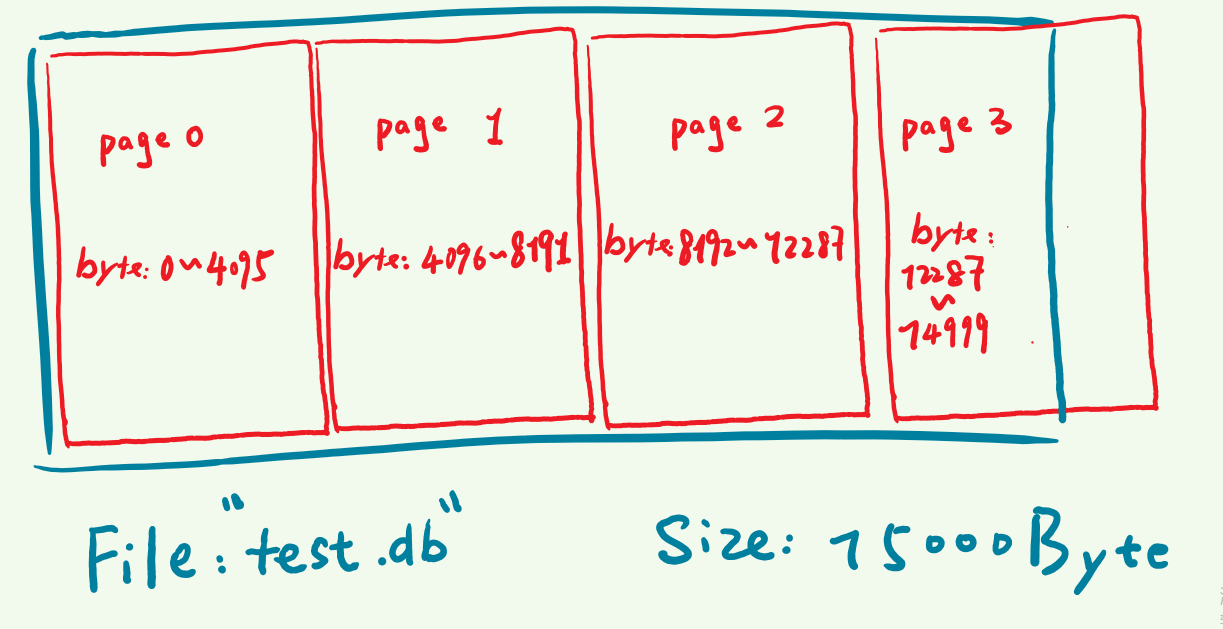 page 0
byte: 0~4095
page 1
byte: 4096~8191
page 2
byte:8192~12287
page 3
byte:
12287
~
14999
File:"test.db"
Size: 15000Byte